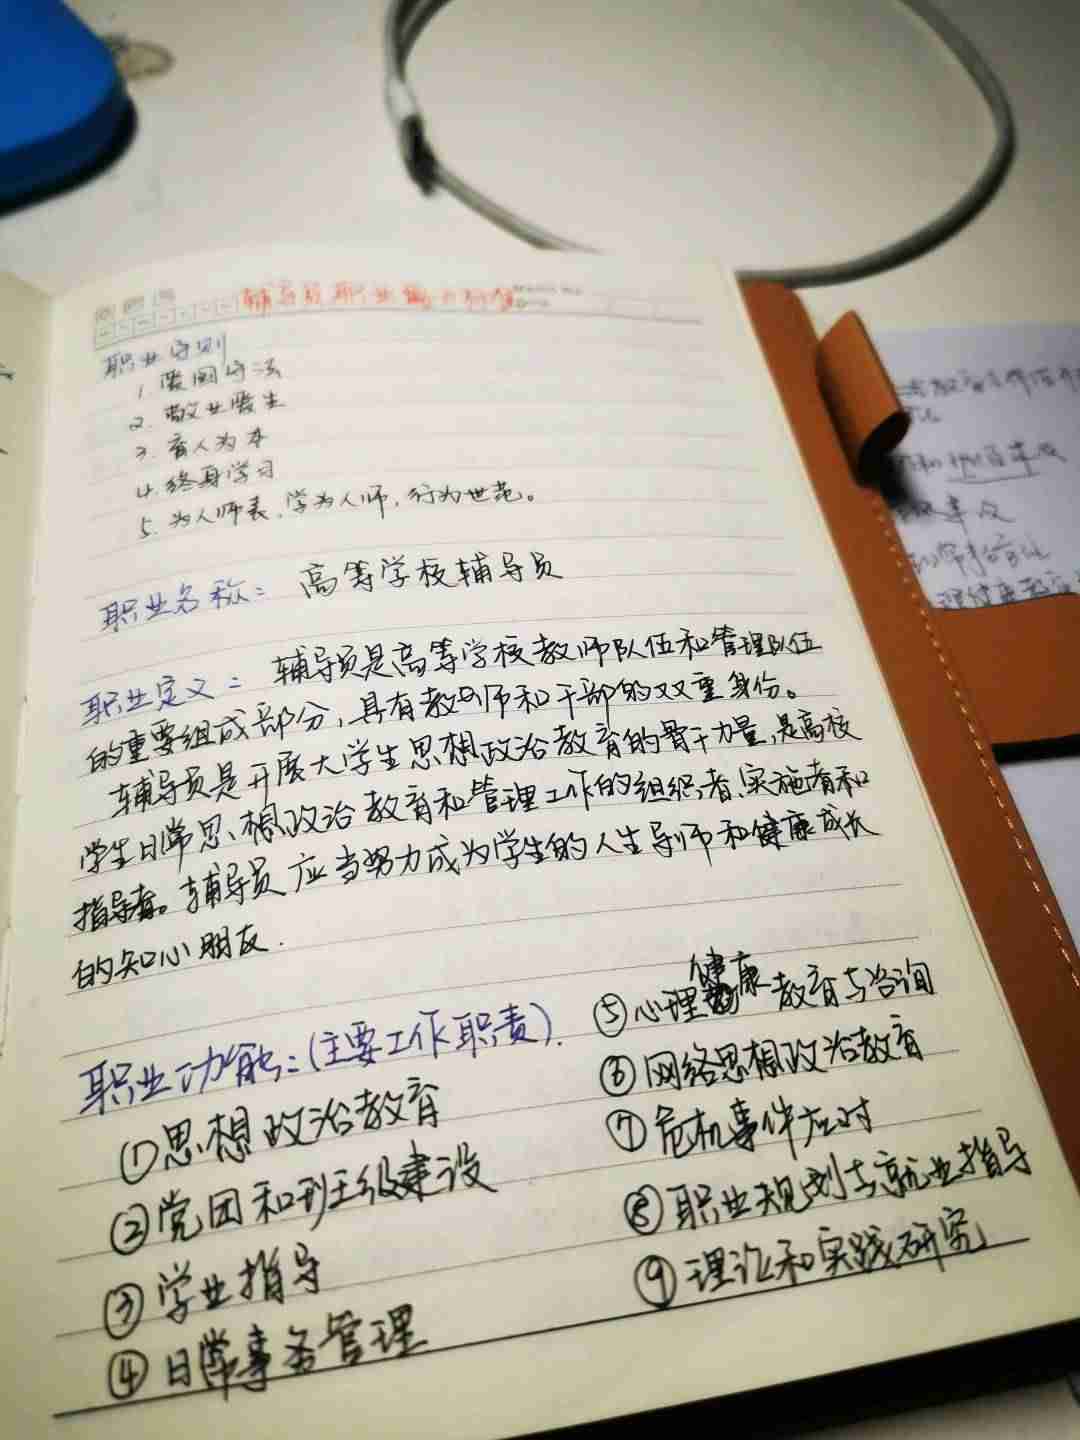 辅导员职业能力标准
职业守则
1. 爱国守法
2. 敬业爱生
3. 育人为本
4. 终身学习
5. 为人师表,学为人师,行为世范。
职业名称: 高等学校辅导员
职业定义: 辅导员是高等学校教师队伍和管理队伍
的重要组成部分,具有教师和干部的双重身份。
辅导员是开展大学生思想政治教育的骨干力量,是高校
学生日常思想政治教育和管理工作的组织者、实施者和
指导者。辅导员应当努力成为学生的人生导师和健康成长
的知心朋友.
职业功能:(主要工作职责).
①思想政治教育
②党团和班级建设
③学业指导
④日常事务管理
⑤心理健康教育与咨询
⑥网络思想政治教育
⑦危机事件应对
⑧职业规划与就业指导
⑨理论和实践研究